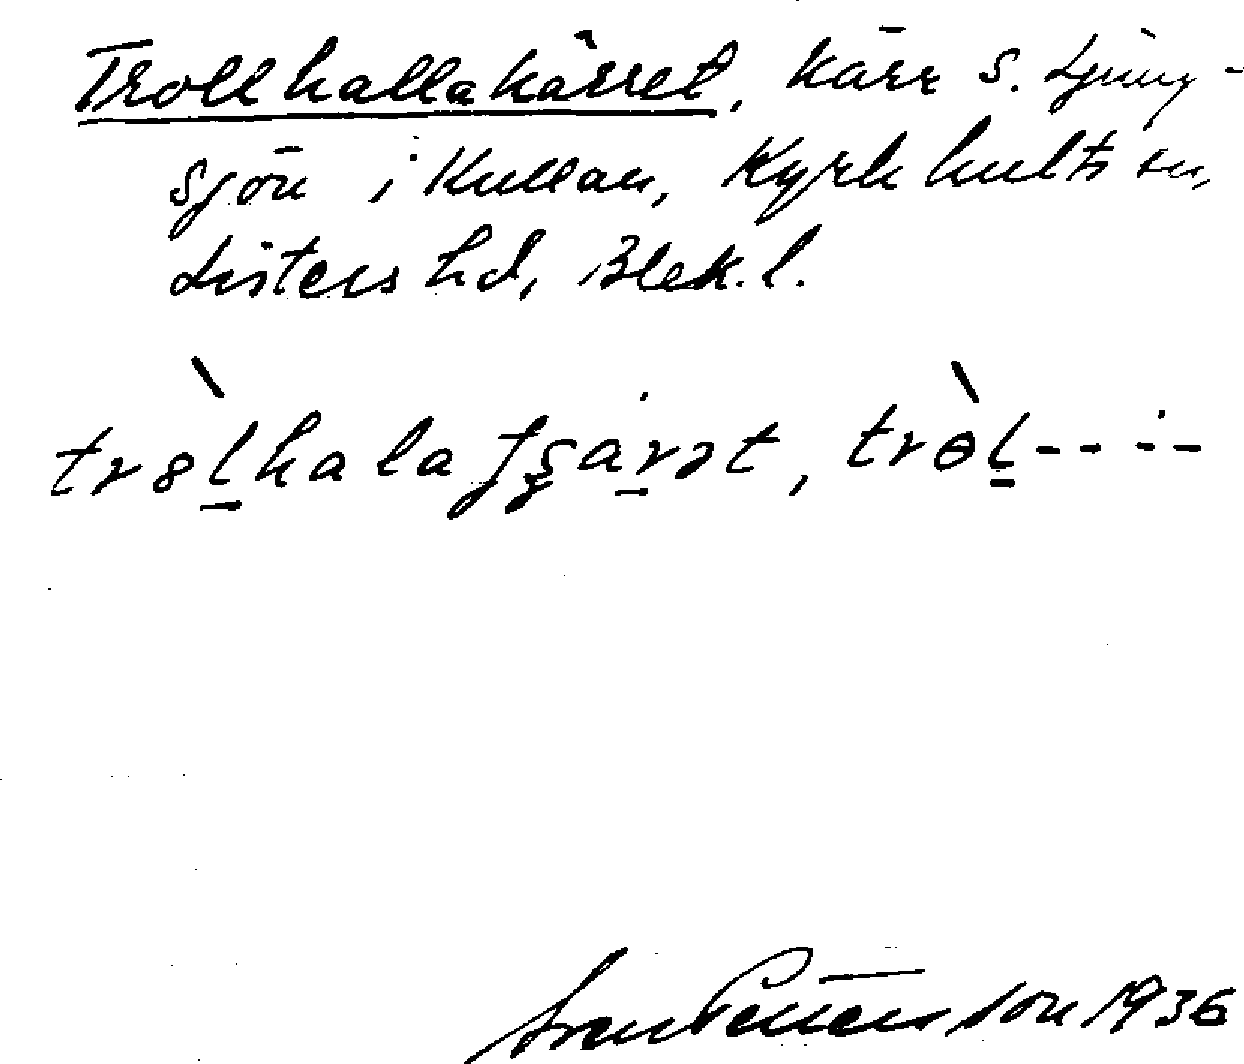 Trollhallakärret, kärr S. Ljung-
sjön i Kullan, Kyrkhults sn,
Listers hd, Blek. l.
trɵ̀lhalafʂärət, trɵ̀l-- --
Sven Pettersson 1936